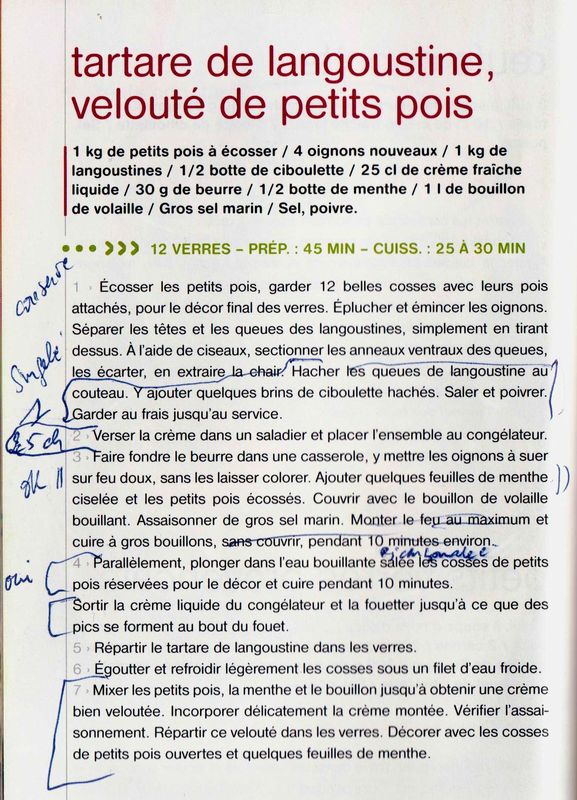 tartare de langoustine,
velouté de petits pois
1 kg de petits pois à écosser / 4 oignons nouveaux / 1 kg de
langoustines / 1/2 botte de ciboulette / 25 cl de crème fraîche
liquide / 30 g de beurre / 1/2 botte de menthe / 1 l de bouillon
de volaille / Gros sel marin / Sel, poivre.
12 VERRES – PRÉP. : 45 MIN – CUISS. : 25 À 30 MIN
conserve
1 › Écosser les petits pois, garder 12 belles cosses avec leurs pois
attachés, pour le décor final des verres. Éplucher et émincer les oignons.
Séparer les têtes et les queues des langoustines, simplement en tirant
dessus. À l'aide de ciseaux, sectionner les anneaux ventraux des queues,
les écarter, en extraire la chair. Hacher les queues de langoustine au
couteau. Y ajouter quelques brins de ciboulette hachés. Saler et poivrer.
Garder au frais jusqu'au service.
2 › Verser la crème dans un saladier et placer l'ensemble au congélateur.
3 › Faire fondre le beurre dans une casserole, y mettre les oignons à suer
sur feu doux, sans les laisser colorer. Ajouter quelques feuilles de menthe
ok
ciselée et les petits pois écossés. Couvrir avec le bouillon de volaille
bouillant. Assaisonner de gros sel marin. Monter le feu au maximum et
cuire à gros bouillons, sans couvrir, pendant 10 minutes environ.
oui
4 › Parallèlement, plonger dans l'eau bouillante salée les cosses de petits
pois réservées pour le décor et cuire pendant 10 minutes.
Sortir la crème liquide du congélateur et la fouetter jusqu'à ce que des
pics se forment au bout du fouet.
5 › Répartir le tartare de langoustine dans les verres.
6 › Égoutter et refroidir légèrement les cosses sous un filet d'eau froide.
7 › Mixer les petits pois, la menthe et le bouillon jusqu'à obtenir une crème
bien veloutée. Incorporer délicatement la crème montée. Vérifier l'assai-
sonnement. Répartir ce velouté dans les verres. Décorer avec les cosses
de petits pois ouvertes et quelques feuilles de menthe.